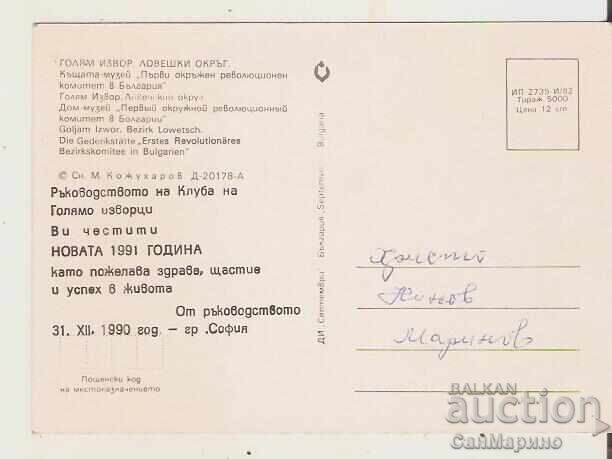 ГОЛЯМ ИЗВОР. ЛОВЕШКИ ОКРЪГ.
Къщата-музей „Първи окръжен революционен
комитет в България"
Голям Извор. Ловечский округ.
Дом-музей "Первый окружной революционный
комитет в Болгарии"
Goljam Izwor. Bezirk Lowetsch.
Die Gedenkstätte „Erstes Revolutionäres
Bezirkskomitee in Bulgarien"
© Сн. М. Кожухаров. Д-20178-А
Ръководството на Клуба на
Голямо изворци
Ви честити
НОВАТА 1991 ГОДИНА
като пожелава здраве, щастие
и успех в живота
От ръководството
31. XII. 1990 год. – гр .София
Пощенски код
на местоназначението
ДИ „Септември" България „Septemvri" Bulgaria
ИП 2735-И/82
Тираж 5000
Цена 12 ст.
Нинов
Маринов
BALKAN
auction
СанМарино